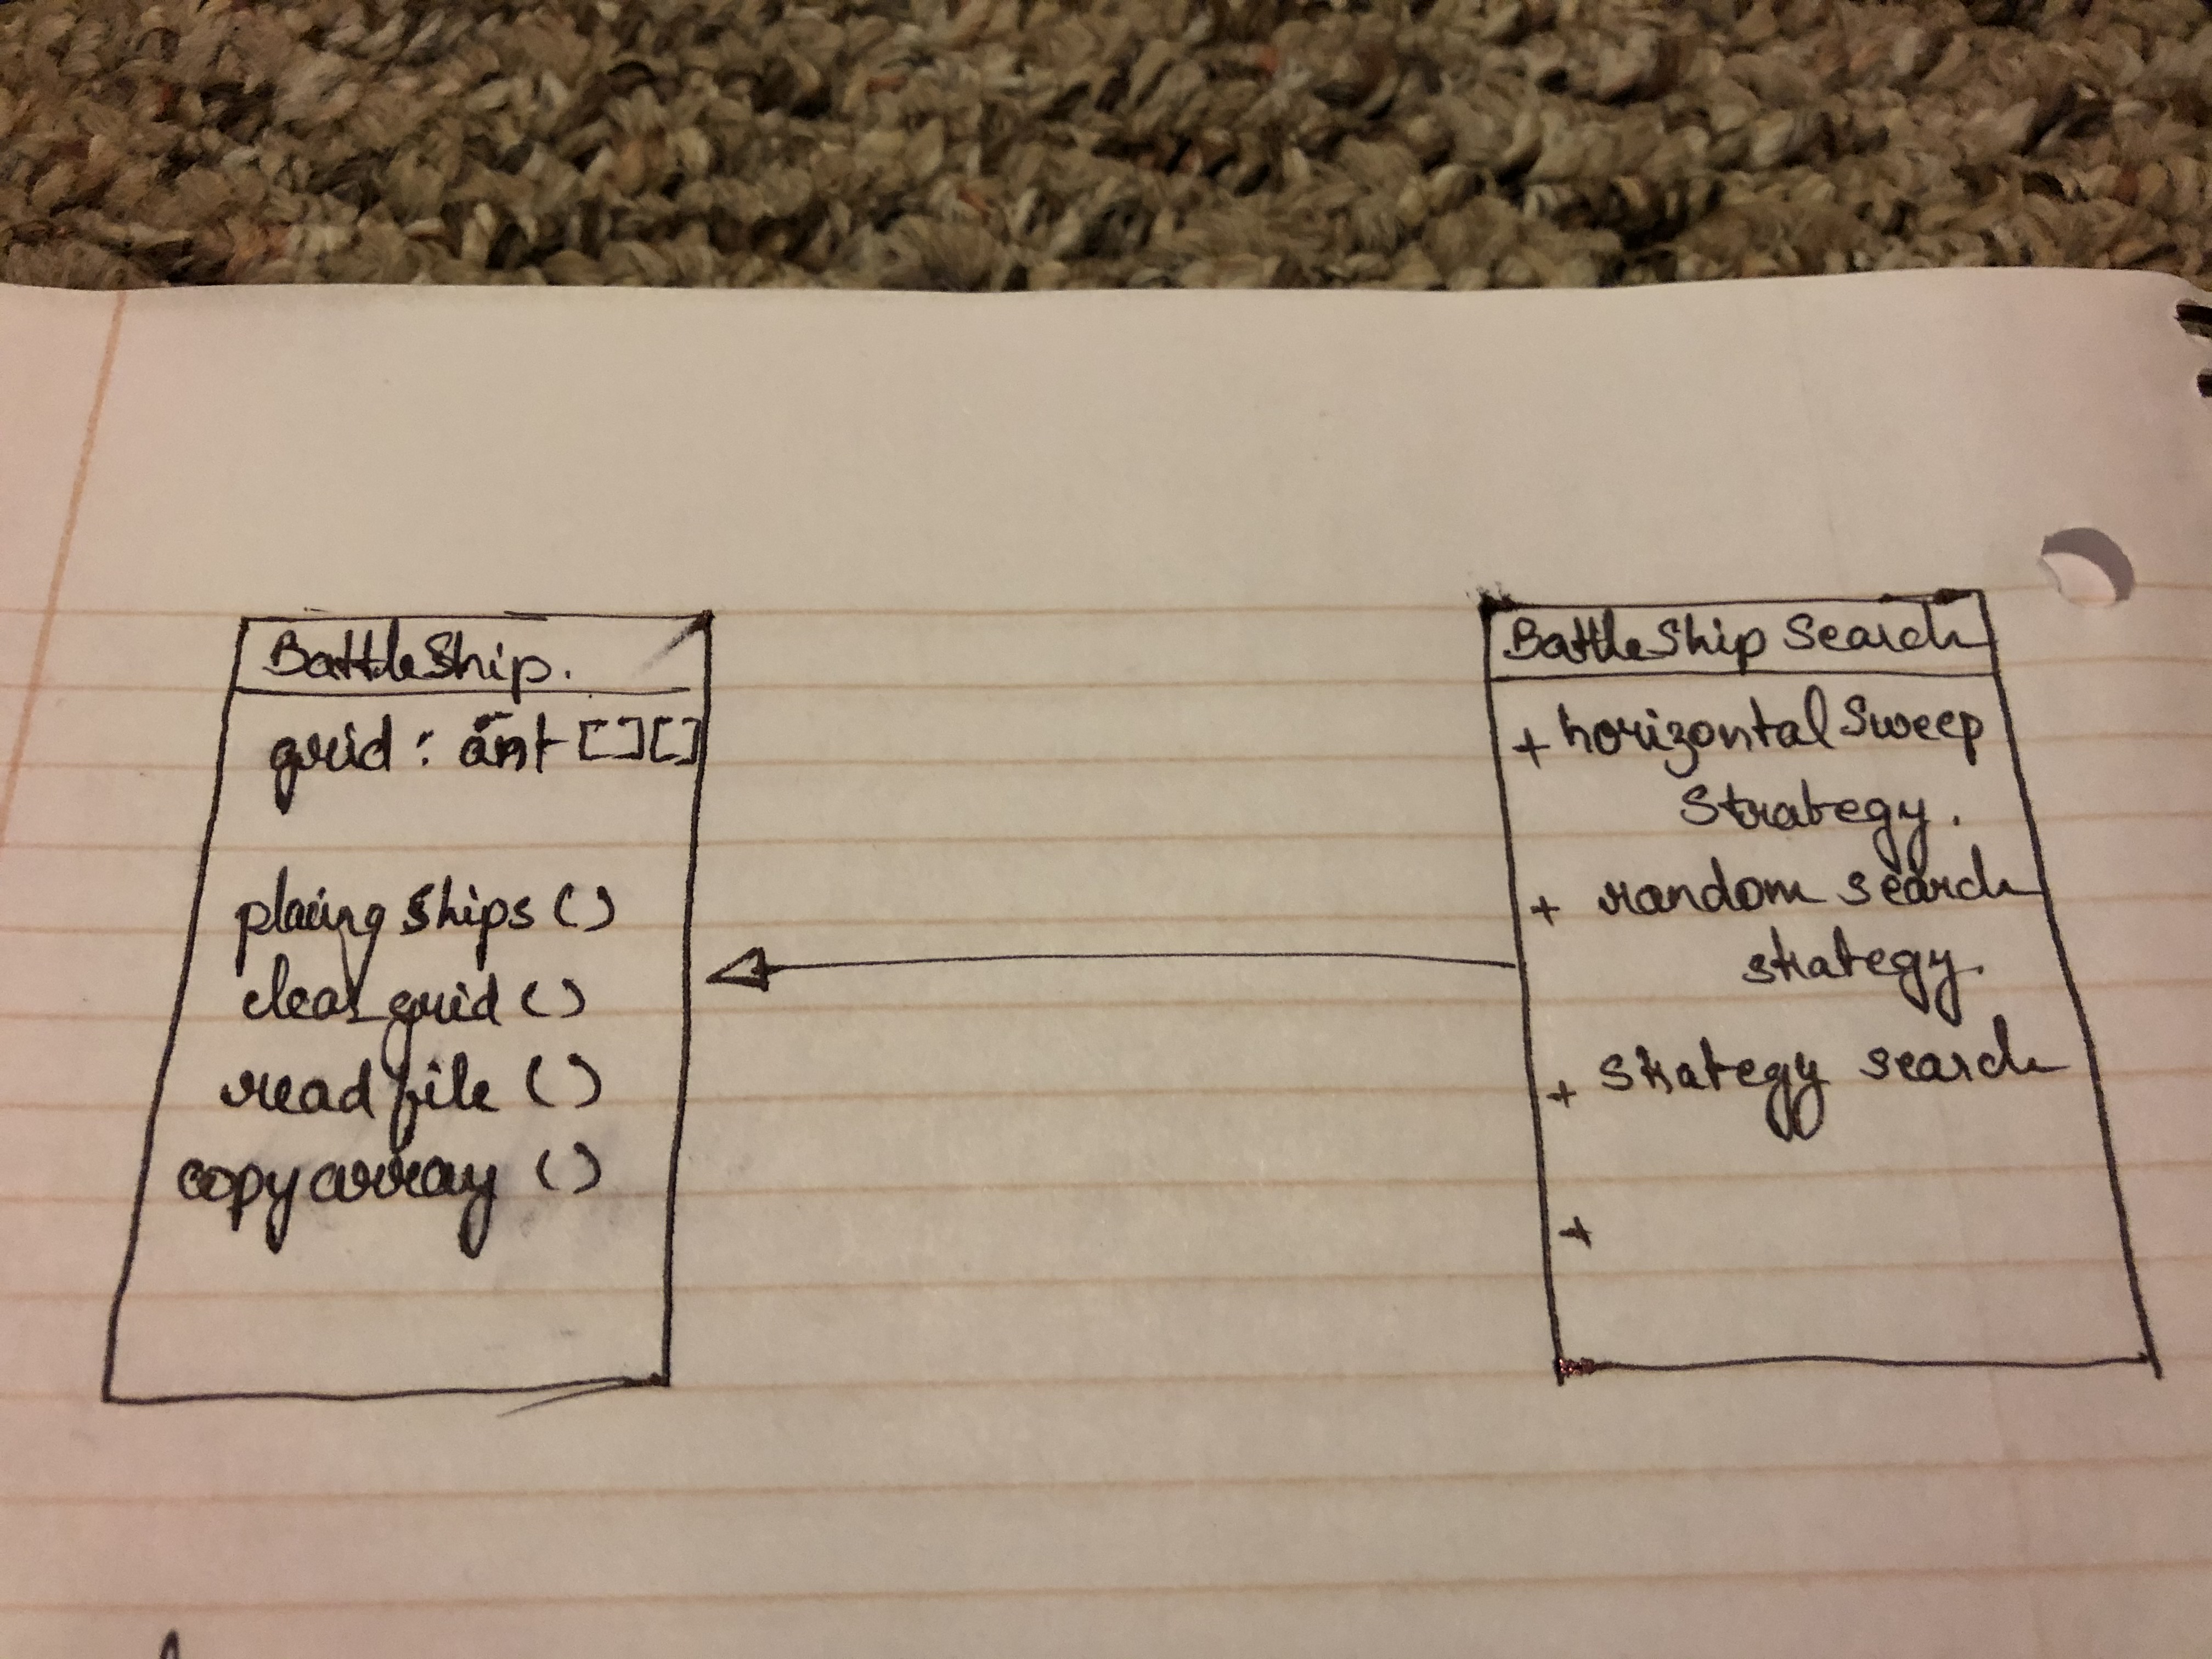 BattleShip.
grid: int [][]
placing ships ()
clear grid ()
read file ()
copy array ()
BattleShip Search
+ horizontal Sweep
Strategy.
+ random search
strategy.
+ strategy search
+